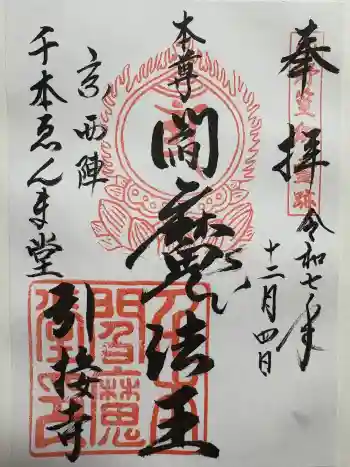 奉拝
令和七年
十二月四日
本尊
閻魔法王
京西陣
千本ゑんま堂
引接寺